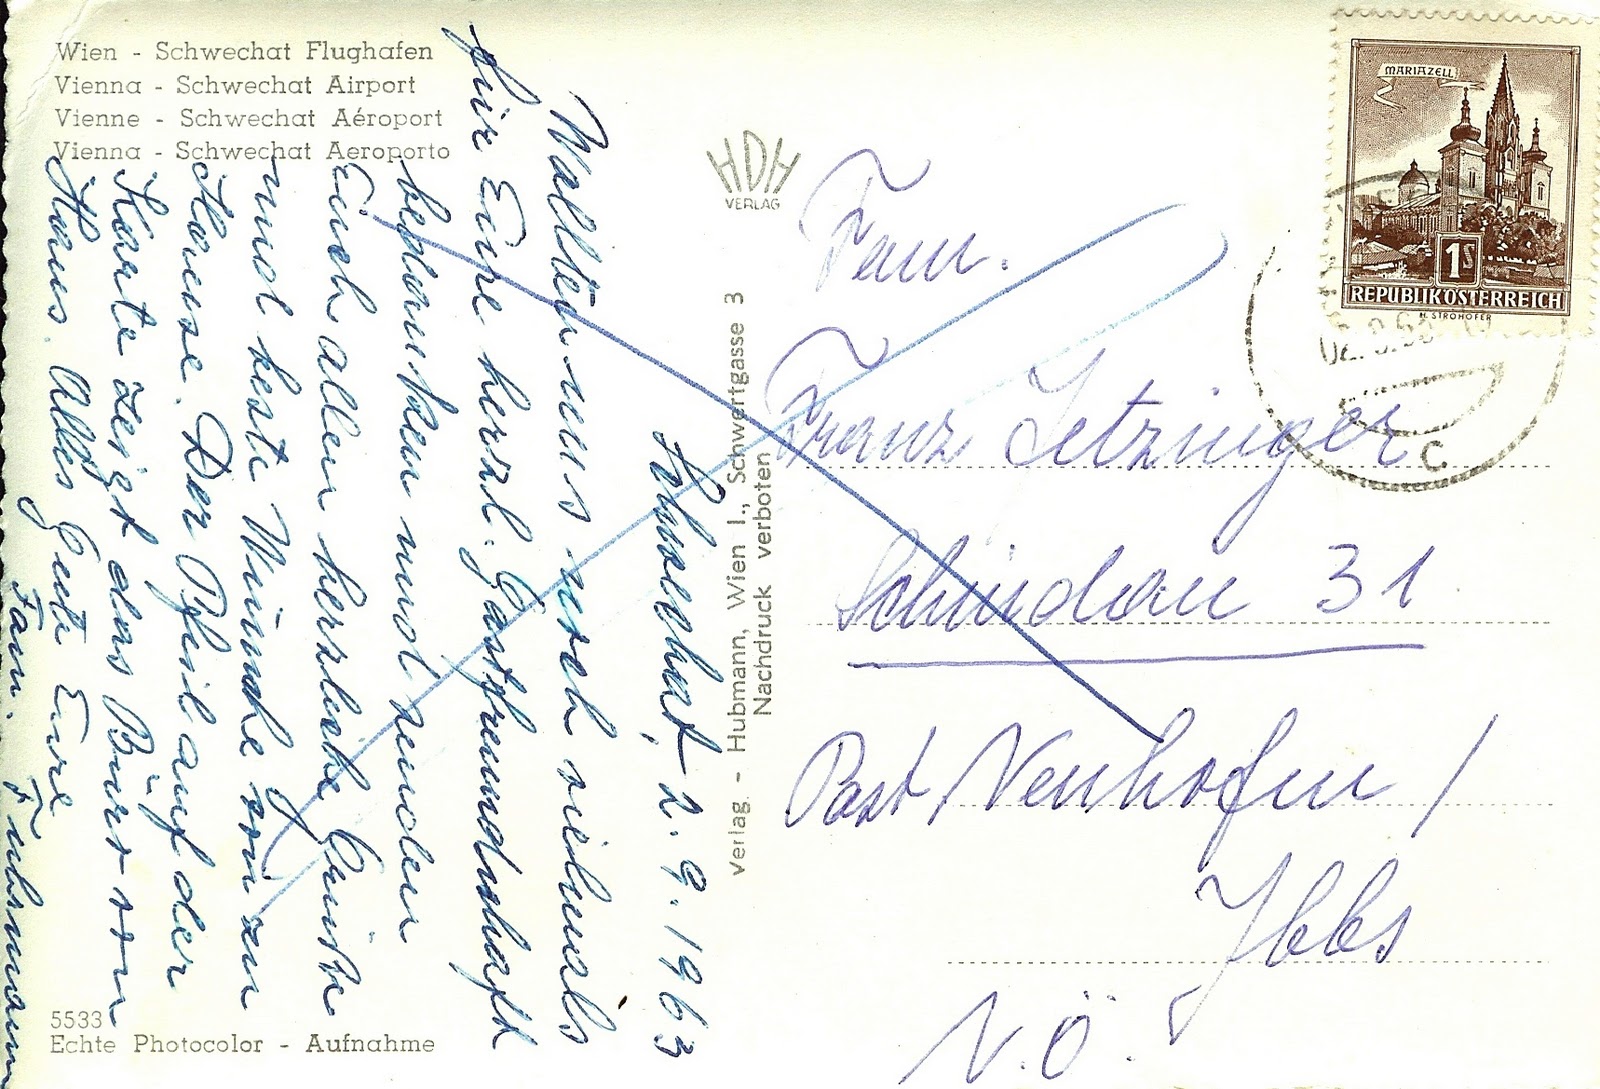 Wien - Schwechat Flughafen
Vienna - Schwechat Airport
Vienne - Schwechat Aéroport
Vienna - Schwechat Aeroporto
Schwechat, 2.9.1963
Wollen uns noch vielmals
für Eure herzl. Gastfreundschaft
bedanken und senden
Euch allen herzliche Grüße
und beste Wünsche von zu
Hause. Der Pfeil auf der
Karte zeigt das Büro von
Hans. Alles Gute Eure
Fam. Fuhrmann
5533
Echte Photocolor - Aufnahme
HDH
VERLAG
Verlag - Hubmann, Wien I., Schwertgasse 3
Nachdruck verboten
MARIAZELL
1S
REPUBLIK ÖSTERREICH
H. STROHOFER
C
Fam.
Franz Jetzinger
Schindau 31
Post Neuhofen /
Ybbs
N.Ö.